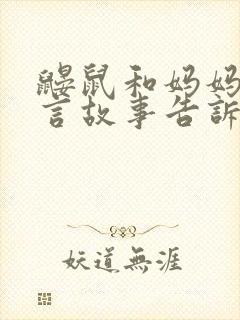 鼹鼠和妈妈
言故事告訴
妖道無涯